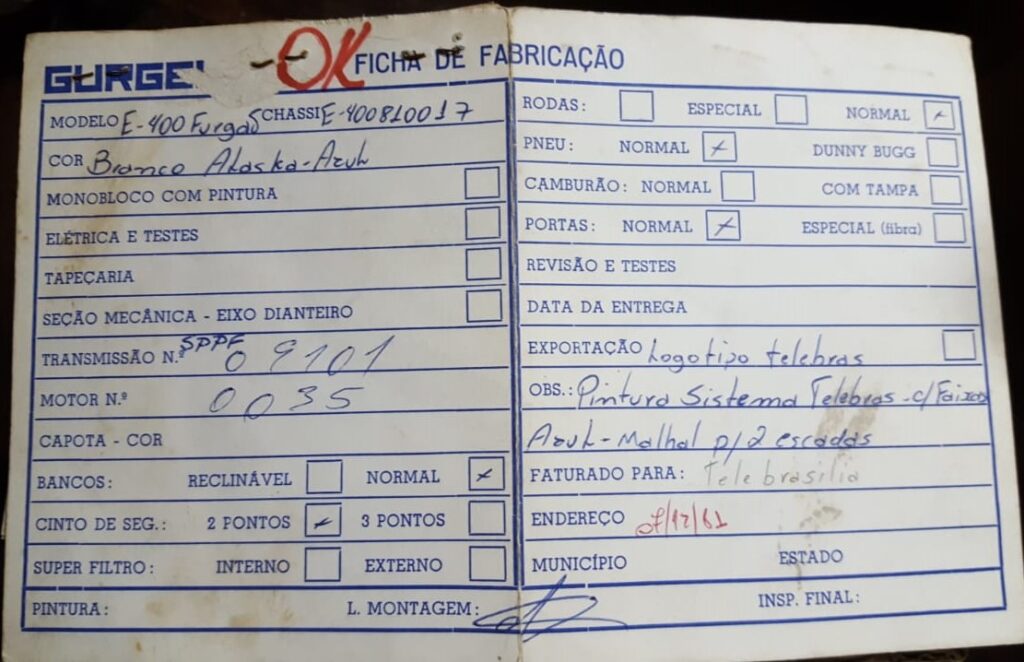 GURGEL OK FICHA DE FABRICAÇÃO
MODELO E-400 Furgão CHASSI E-400810017
COR Branco Alaska-Azul
MONOBLOCO COM PINTURA
ELÉTRICA E TESTES
TAPEÇARIA
SEÇÃO MECÂNICA - EIXO DIANTEIRO
TRANSMISSÃO N.º SPPF 09101
MOTOR N.º 0035
CAPOTA - COR
BANCOS: RECLINÁVEL NORMAL
CINTO DE SEG.: 2 PONTOS 3 PONTOS
SUPER FILTRO: INTERNO EXTERNO
PINTURA: L. MONTAGEM:
RODAS: ESPECIAL NORMAL
PNEU: NORMAL DUNNY BUGG
CAMBURÃO: NORMAL COM TAMPA
PORTAS: NORMAL ESPECIAL (fibra)
REVISÃO E TESTES
DATA DA ENTREGA
EXPORTAÇÃO Logotipo telebras
OBS.: Pintura Sistema Telebras - c/ Faixas
Azul - p/2 escadas
FATURADO PARA: Telebrasilia
ENDEREÇO
MUNICÍPIO ESTADO
INSP. FINAL: